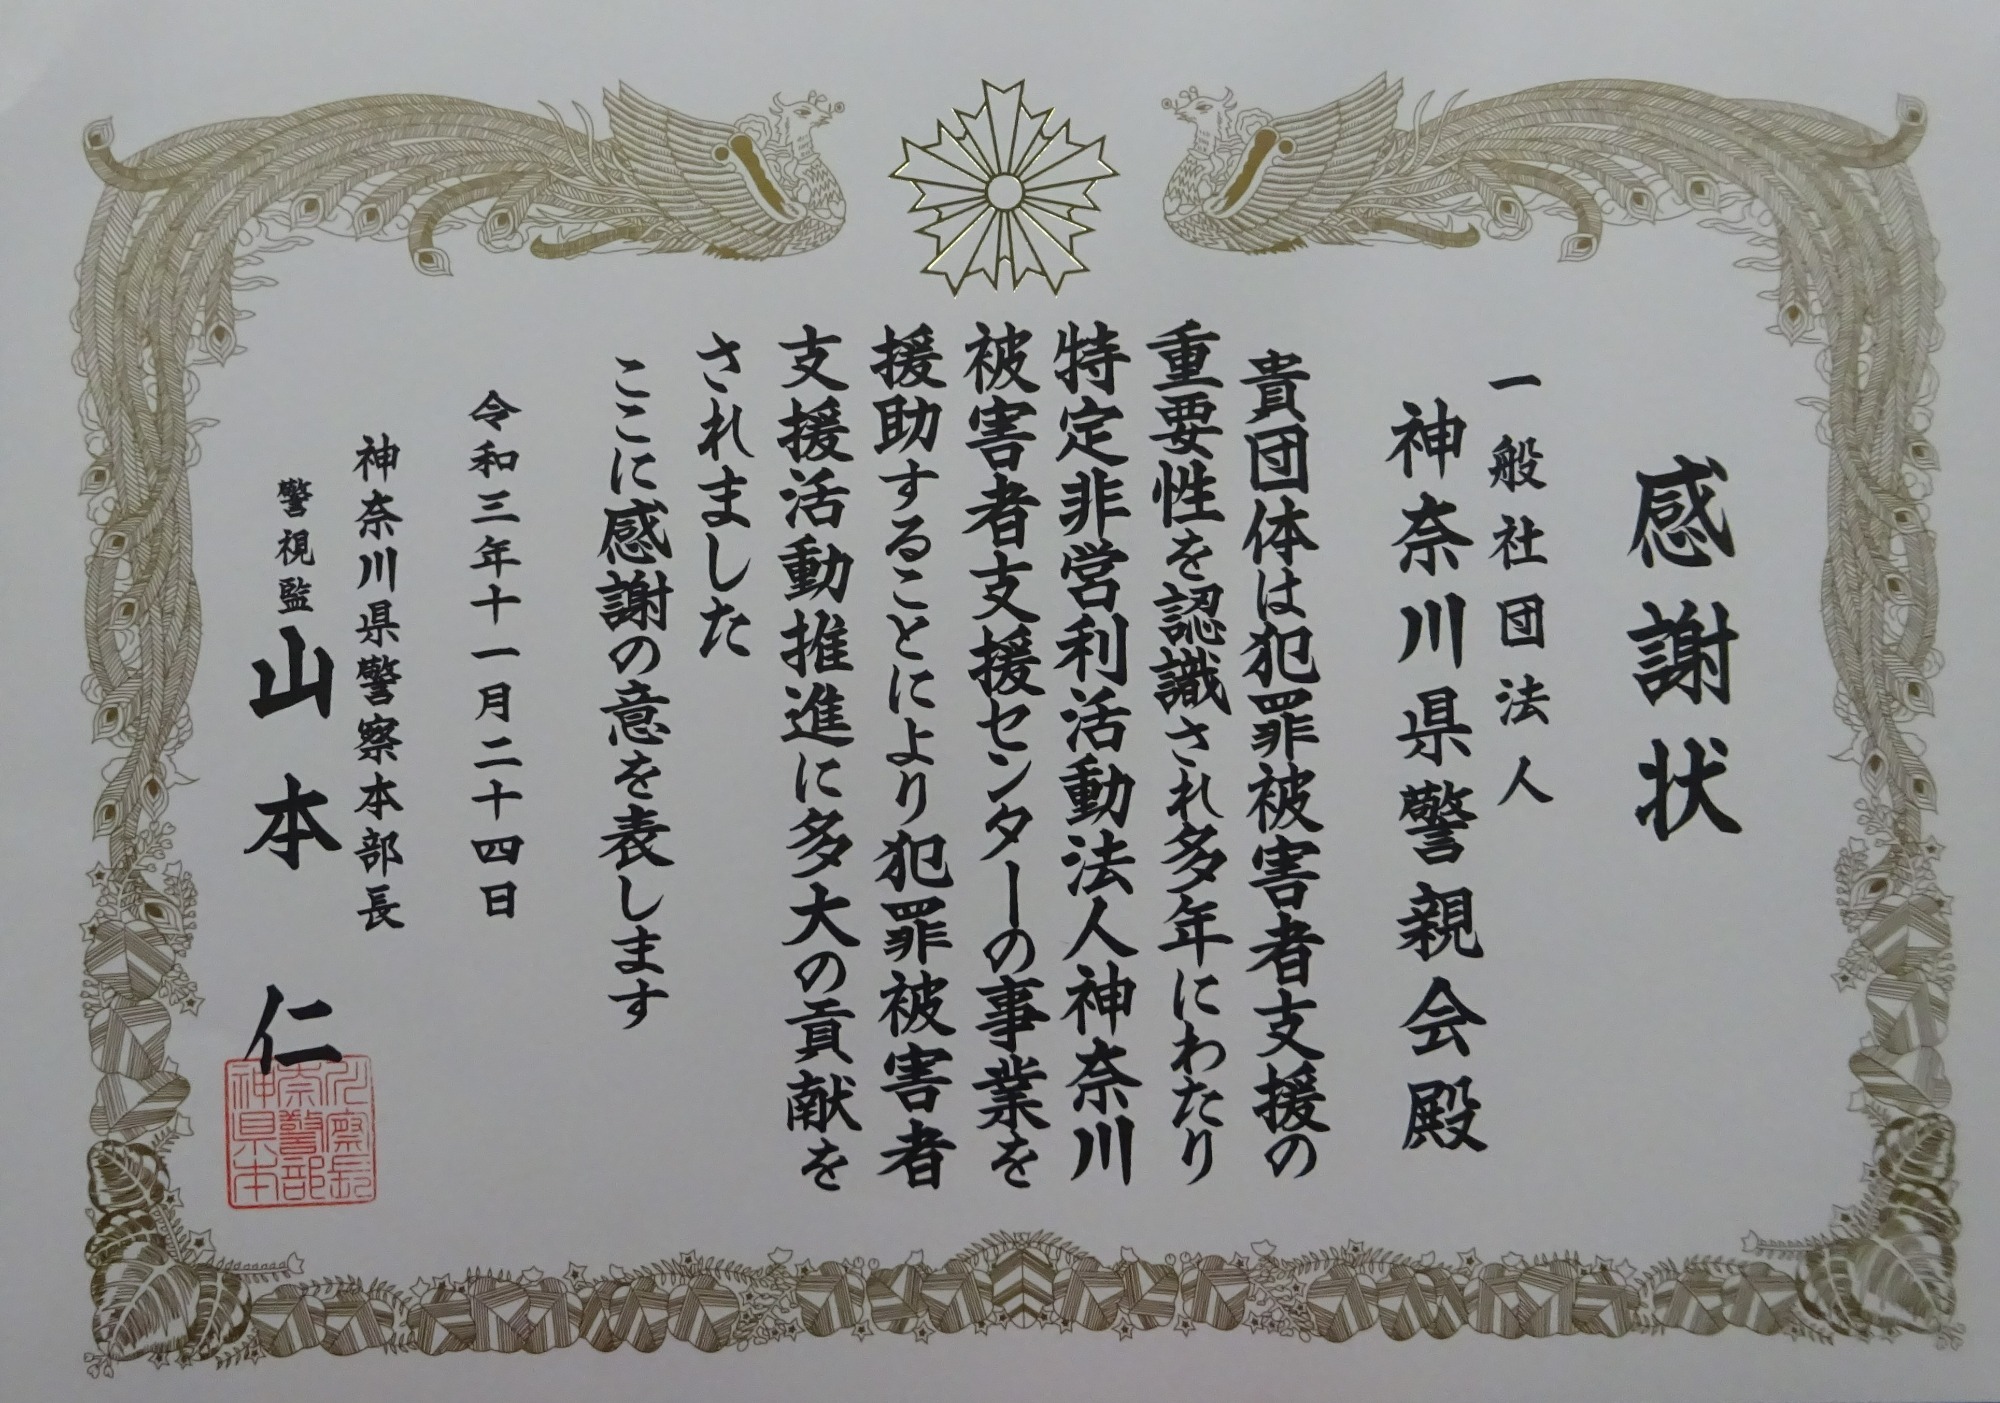 感謝状
一般社団法人
神奈川県警親会殿
貴団体は犯罪被害者支援の
重要性を認識され多年にわたり
特定非営利活動法人神奈川
被害者支援センターの事業を
援助することにより犯罪被害者
支援活動推進に多大の貢献を
されました
ここに感謝の意を表します
令和三年十一月二十四日
神奈川県警察本部長
警視監 山本 仁
神奈川県警察本部長